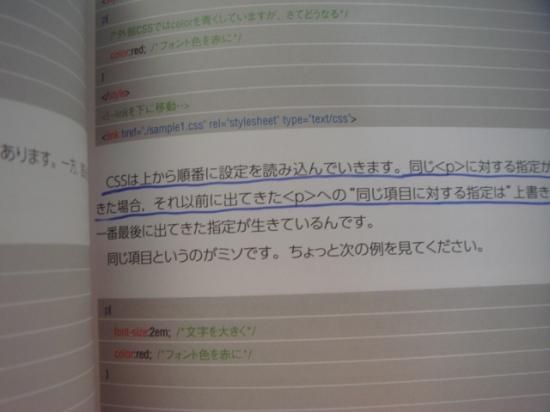 p{
/*外部CSSではcolorを青くしていますが、さてどうなる*/
color:red; /*フォント色を赤に*/
}
</style>
<!--linkを下に移動-->
<link href="./sample1.css" rel="stylesheet" type="text/css">
あります。一方、
CSSは上から順番に設定を読み込んでいきます。同じ<p>に対する指定が
きた場合、それ以前に出てきた<p>への"同じ項目に対する指定は"上書き
一番最後に出てきた指定が生きているんです。
同じ項目というのがミソです。ちょっと次の例を見てください。
p{
font-size:2em; /*文字を大きく*/
color:red; /*フォント色を赤に*/
}